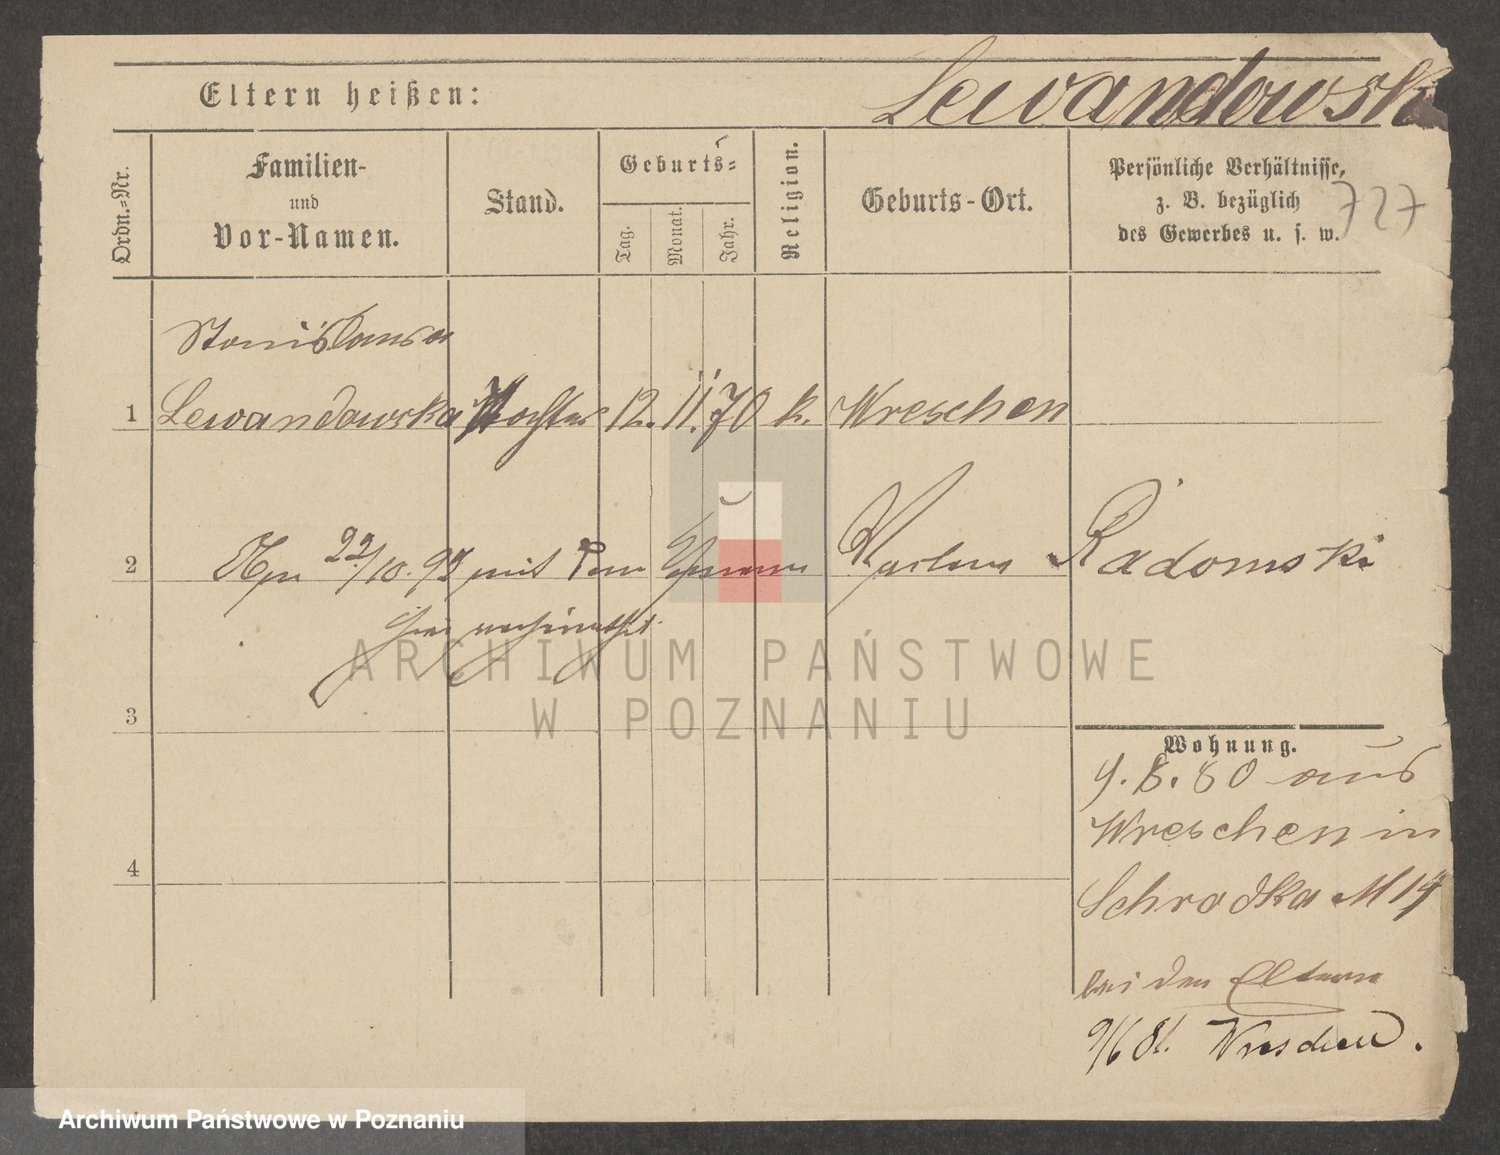 Lewandowski
Eltern heißen:
Ordn.=Nr.
Familien-
und
Vor-Namen.
Stand.
Geburts=
Tag.
Monat.
Jahr.
Religion.
Geburts-Ort.
Persönliche Verhältnisse,
z. B. bezüglich
des Gewerbes u. s. w.
727
Stanislawa
1 Lewandowska Tochter 12. 11. 70 k. Wreschen
2 22/10. mit dem Radomski
hier verheirathet.
3
Wohnung.
9. 8. 80 aus
Wreschen in
4
Schrodka N 14
bei den Eltern
9/6 81. Wreschen.
ARCHIWUM PAŃSTWOWE
W POZNANIU
Archiwum Państwowe w Poznaniu